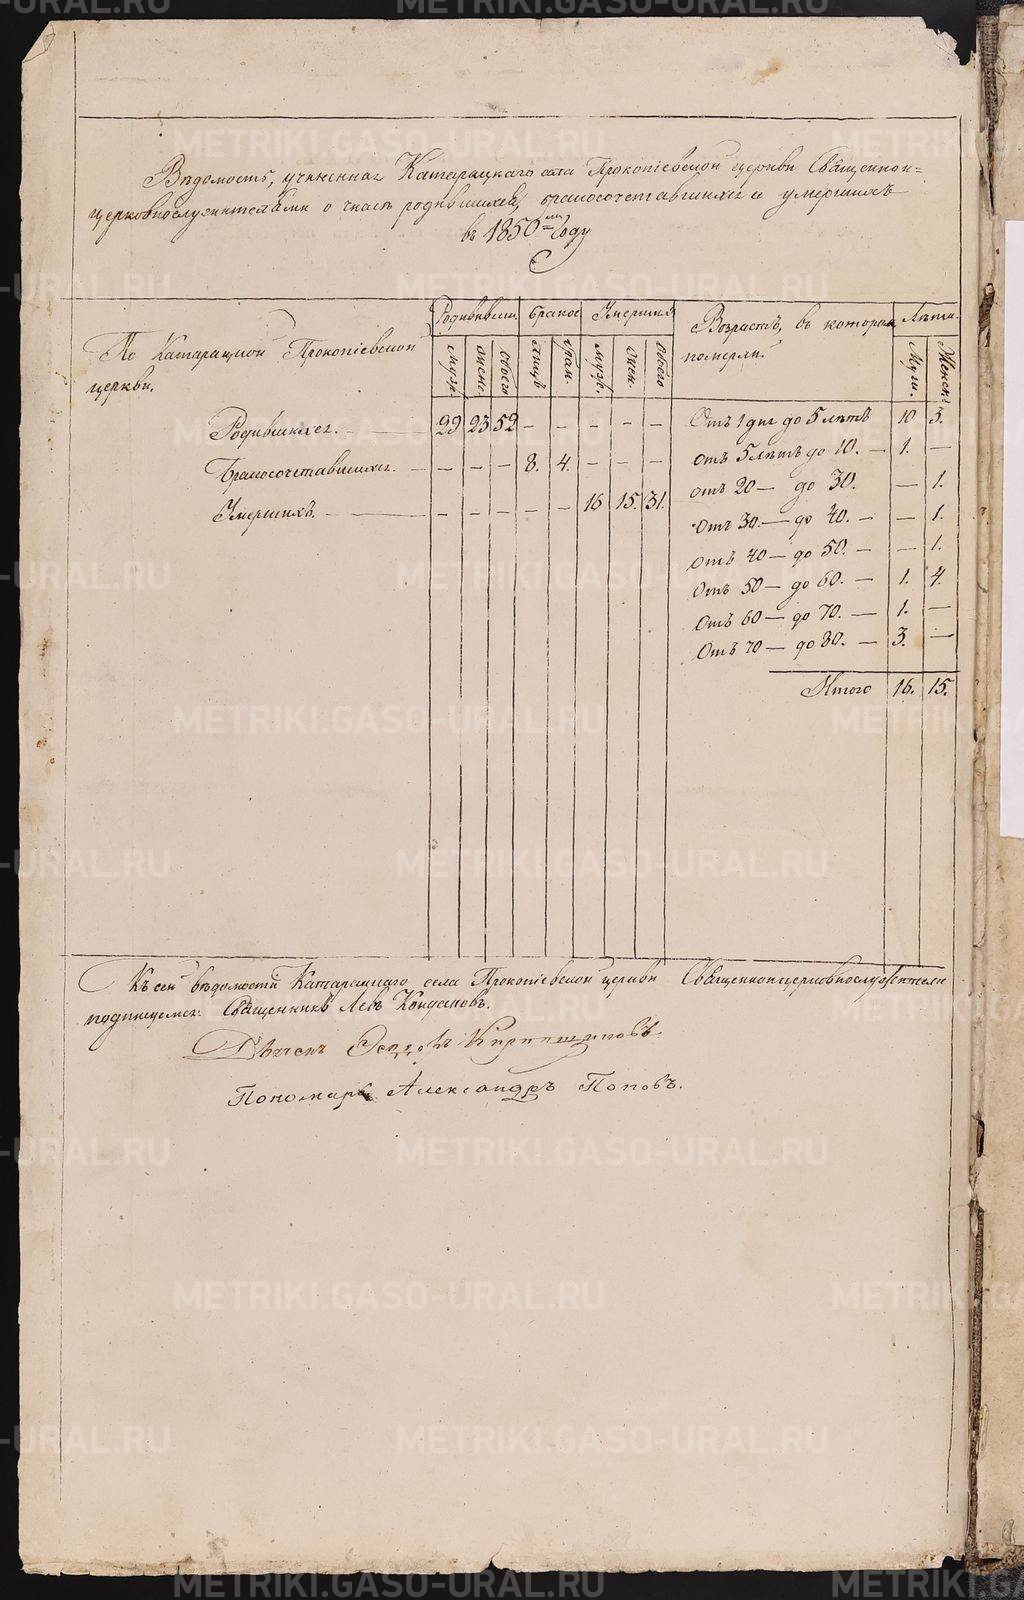 Вѣдомость, учиненная Катарацкаго села Прокопіевской церкви Священно-
церковнослужителями о числѣ родившихся, бракосочетавшихся и умершихъ
въ 1850мъ Году
По Катарацкой Прокопіевской
церкви.
Родивших. Бракос. Умершихъ
Муж. Женс. Обоего Лицъ Брак. Муж. Жен. Обоего
Возрастъ, въ которомъ
померли.
Лѣта.
Муж. Женск.
Родившихся. — 29 23 52 - - - - -
Бракосочетавшихся. — - - - 8. 4. - - -
Умершихъ. — - - - - - 16 15. 31.
Отъ 1 дня до 5 лѣтъ 10 3.
отъ 5 лѣтъ до 10. — 1. —
отъ 20 — до 30. — 1.
Отъ 30. — до 40. — — 1.
отъ 40 — до 50. — — 1.
Отъ 50 — до 60. — 1. 4.
Отъ 60 — до 70. — 1. —
Отъ 70 — до 80. — 3. —
Итого 16. 15.
Къ сей вѣдомости Катарацкаго села Прокопіевской церкви Священноицерковнослужители
подпишуемся: Священникъ Левъ Кондаковъ.
Дьячекъ Кирпищиковъ.
Пономарь Александръ Поповъ.
METRIKI.GASO-URAL.RU